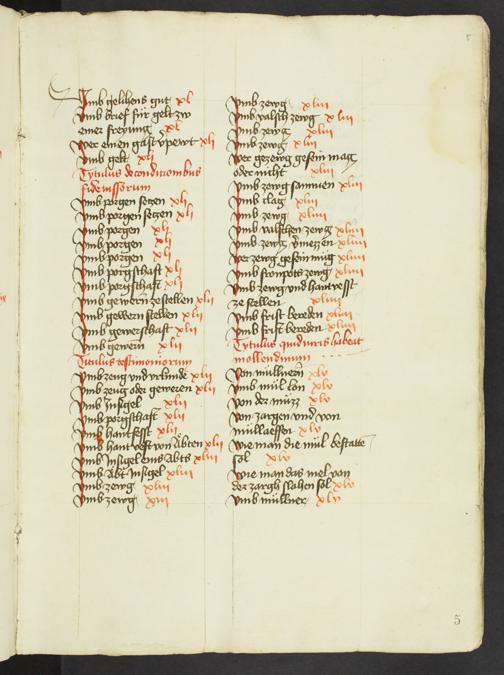 Umb gelihens gut xl
Umb brief für gelt zw
einer freyung xl
Wer einen gast v̈pewt xli
Umb gelt xli
Tytulus de condicionibus
fideiussorum
Umb porgen seczen xli
Umb porgen seczen xli
Umb porgen xli
Umb porgen xli
Umb porgen xli
Umb porgschaft xli
Umb porgschaft xli
Umb gewern zestellen xlii
Umb gewern stellen xlii
Umb gewerschaft xlii
Umb gewern xlii
Titulus testimoniorum
Umb zeug und urkunde xlii
Umb zeug oder geweren xlii
Umb Insigel xlii
Umb porgschaft xlii
Umb hantfesst xlii
Umb hant vest von Abten xlii
Umb Insigel ains Abts xliii
Umb Abt Insigel xliii
Umb zewg xliii
Umb zewg xliii
Umb zewg xliii
Umb valsch zewg xliii
Umb zewg xliii
Umb zewg xliii
Wer gezewg gesein mag
oder nicht xliii
Umb zewg samnen xliii
Umb clag xliii
Umb zewg xliiii
Umb valschen zewg xliiii
Umb zewg xliiii
Wer zewg gesein mug xliiii
Umb fronpots zewg xliiii
Umb zewg und hantvesst
ze stellen xliiii
Umb frist bereden xliiii
Umb frist bereden xliiii
Tytulus quid iuris habeit
mollendinum
Von müllnern xlv
Umb mül lon xlv
Von der mücz xlv
Von zargen und von
müllaessen xlv
Wie man die mül bestatte
sol xlv
Wie man das mel von
der zargh slahen sol xlv
Umb müllner xlv
5